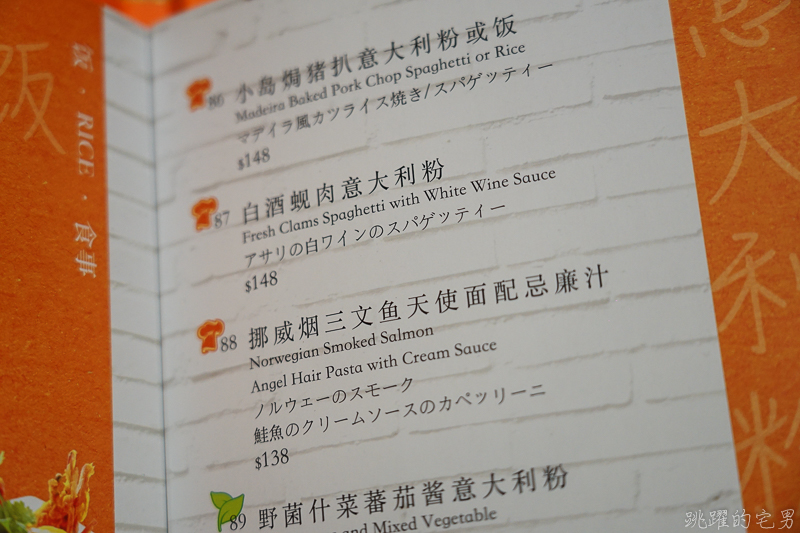 饭 · RICE · 食事
饭
86 小岛焗猪扒意大利粉或饭
Madeira Baked Pork Chop Spaghetti or Rice
マデイラ風カツライス焼き/スパゲッティー
$148
87 白酒蚬肉意大利粉
Fresh Clams Spaghetti with White Wine Sauce
アサリの白ワインのスパゲッティー
$148
88 挪威烟三文鱼天使面配忌廉汁
Norwegian Smoked Salmon
Angel Hair Pasta with Cream Sauce
ノルウェーのスモーク
鮭魚のクリームソースのカペッリーニ
$138
89 野菌什菜蕃茄酱意大利粉
and Mixed Vegetable
意大利粉
跳躍的宅男